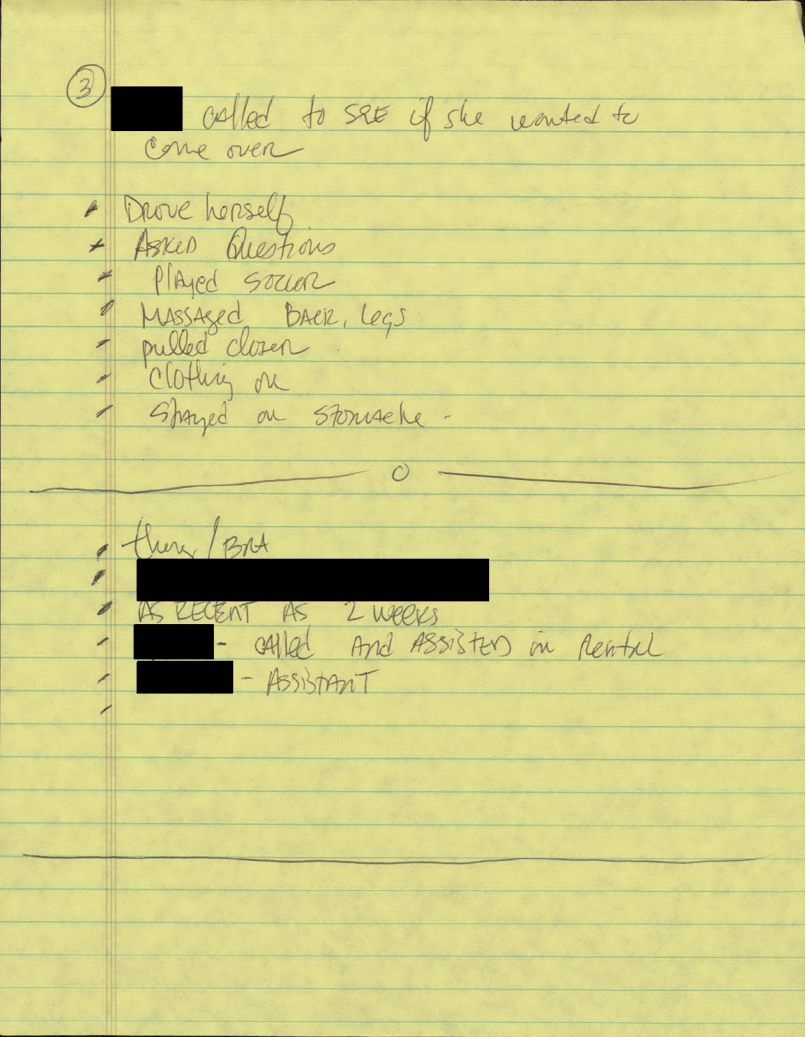 3
called to SEE if she wanted to
come over
Drove herself
Asked Questions
Played soccer
MASSAged BACK, Legs
pulled closer
Clothing on
Stayed on stomache -
/ BRA
AS RECENT AS 2 WEEKS
- called And ASSISTED in Rental
- ASSISTANT